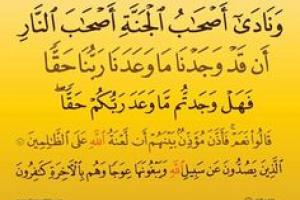 وَنَادَىٰٓ أَصْحَٰبُ الْجَنَّةِ أَصْحَٰبَ النَّارِ
أَن قَدْ وَجَدْنَا مَا وَعَدَنَا رَبُّنَا حَقًّا
فَهَلْ وَجَدتُّم مَّا وَعَدَ رَبُّكُمْ حَقًّا ۖ
قَالُوا۟ نَعَمْ ۚ فَأَذَّنَ مُؤَذِّنٌۢ بَيْنَهُمْ أَن لَّعْنَةُ اللَّهِ عَلَى الظَّٰلِمِينَ
الَّذِينَ يَصُدُّونَ عَن سَبِيلِ اللَّهِ وَيَبْغُونَهَا عِوَجًا وَهُم بِالْءَاخِرَةِ كَٰفِرُونَ